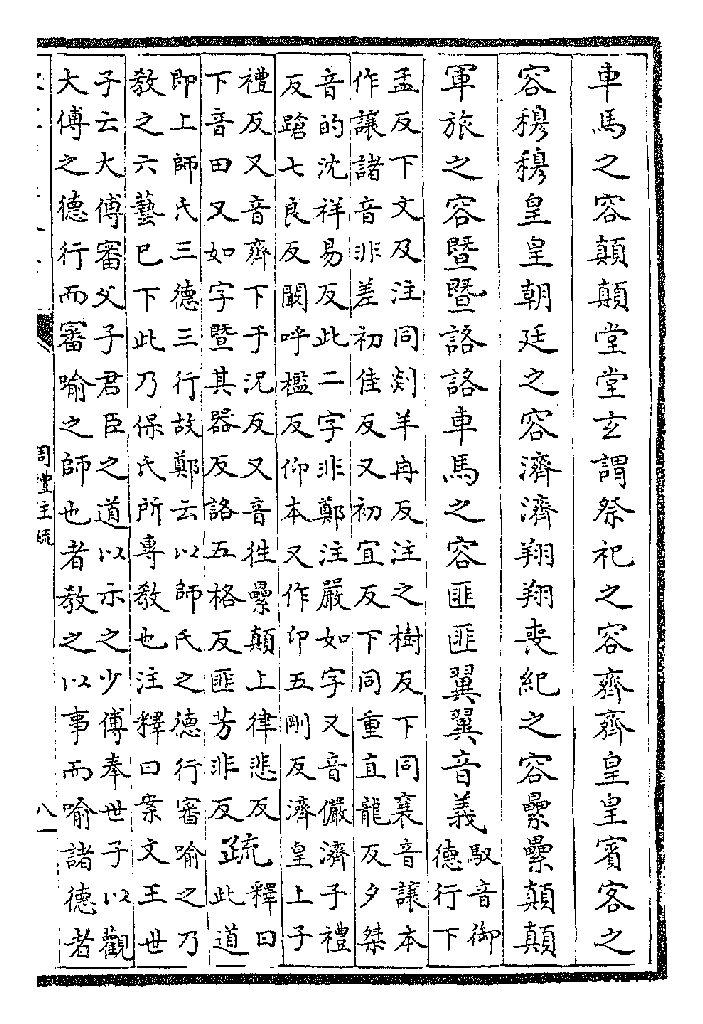 車馬之容顛顛堂堂玄謂祭祀之容齊齊皇皇賓客之
容穆穆皇皇朝廷之容濟濟翔翔喪紀之容纍纍顛顛
軍旅之容暨暨詻詻車馬之容匪匪翼翼音義馭音御
德行下
孟反下文及注同剡羊冉反注之樹反下同襄音讓本
作讓諸音非差初佳反又初宜反下同重直龍反夕桀
音的沈祥易反此二字非鄭注嚴如字又音儼濟子禮
反蹌七良反闞呼檻反仰本又作卬五剛反濟皇上子
禮反又音齊下于況反又音往纍顛上律悲反
下音田又如字暨其器反詻五格反匪芳非反
疏釋曰
此道
即上師氏三德三行故鄭云以師氏之德行審喻之乃
教之六藝已下此乃保氏所專教也注釋曰案文王世
子云大傅審父子君臣之道以示之少傅奉世子以觀
大傅之德行而審喻之師也者教之以事而喻諸德者
周禮注疏